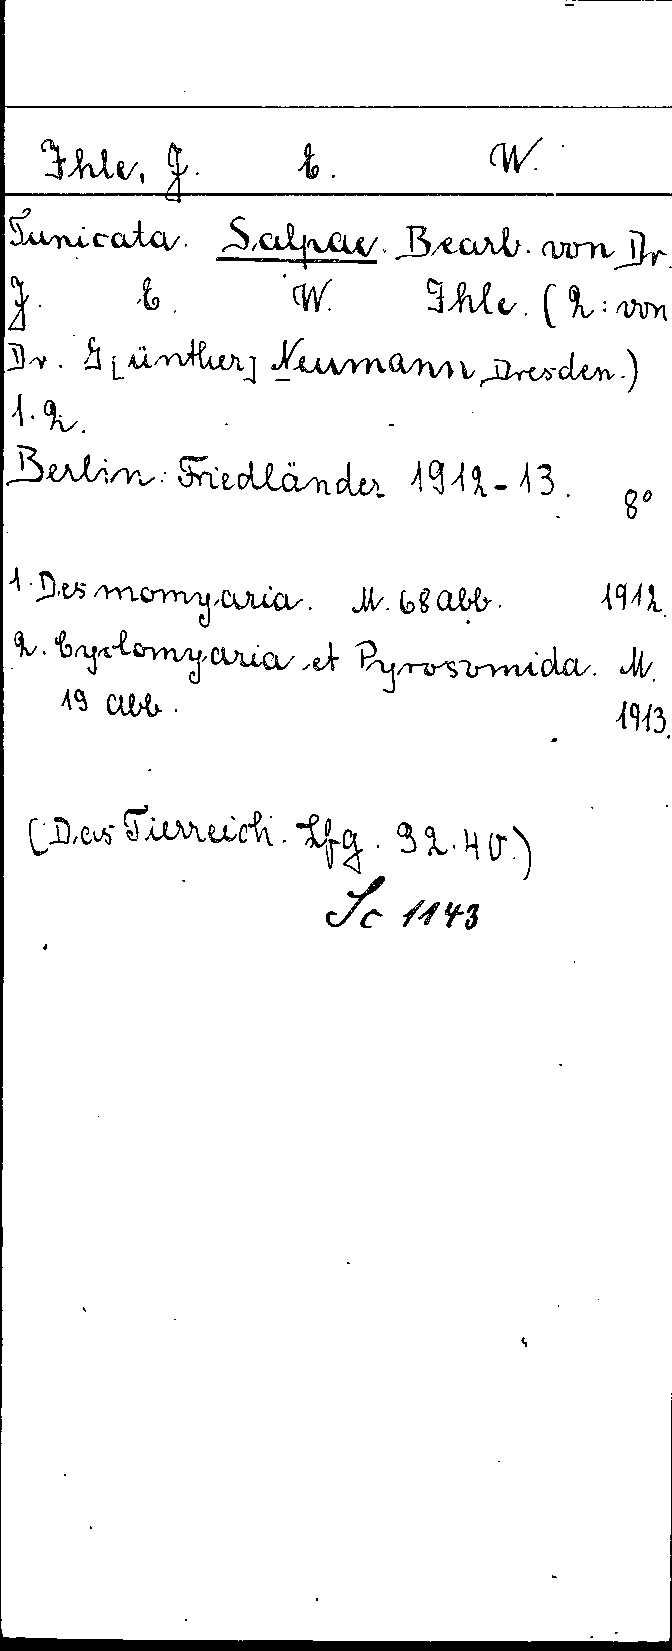 Ihle, J. E. W.
Tunicata. Salpae. Bearb. von Dr.
J. E. W. Ihle. (2: von
Dr. G[ünther] Neumann, Dresden.)
1. 2.
Berlin: Friedländer 1912-13. 8°
1. Desmomyaria. M. 68 Abb. 1912.
2. Cyclomyaria et Pyrosomida. M.
19 Abb. 1913.
(Das Tierreich. Lfg. 32. 40.)
Sc 1143